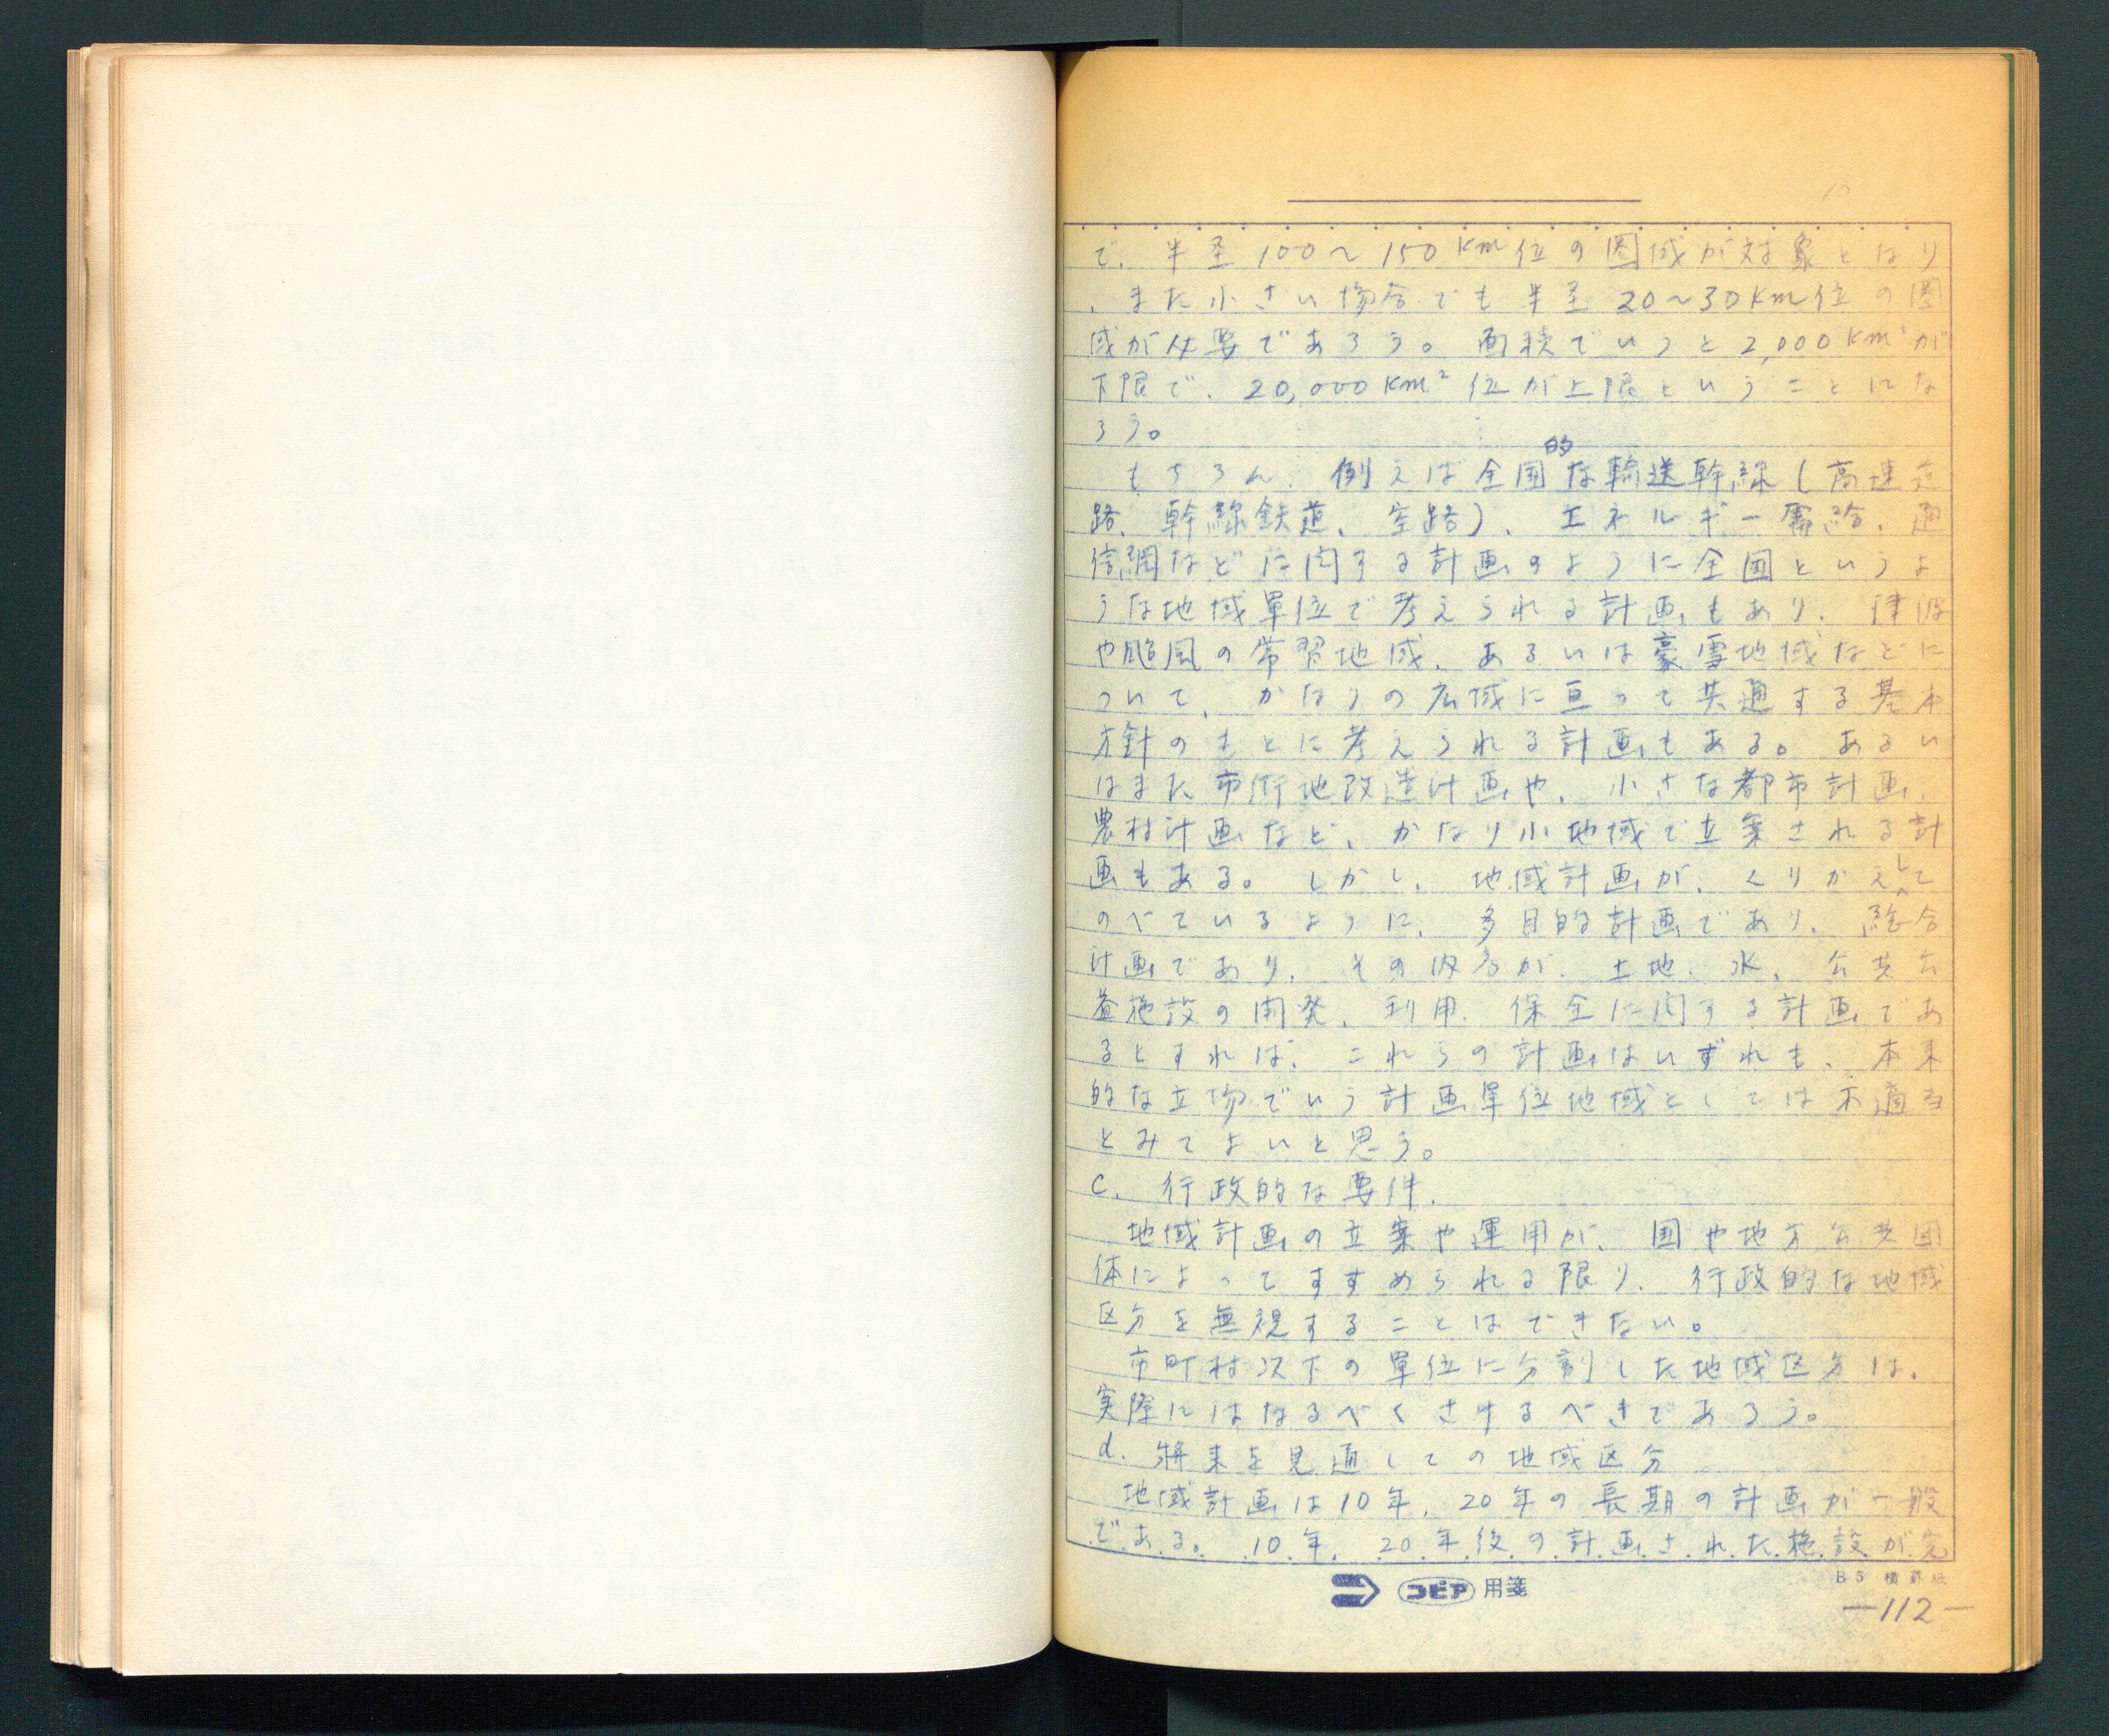 10
で、半径100〜150km位の圏域が対象となり
、また小さい場合でも半径20〜30km位の圏
域が必要であろう。面積でいうと2,000km²が
下限で、20,000km²位が上限ということにな
ろう。
もちろん、例えば全国的な輸送幹線（高速道
路、幹線鉄道、空路）、エネルギー需給、通
信網などに関する計画のように全国というよ
うな地域単位で考えられる計画もあり、津波
や颱風の常習地域、あるいは豪雪地域などに
ついて、かなりの広域に亘って共通する基本
方針のもとに考えられる計画もある。あるい
はまた市街地改造計画や、小さな都市計画、
農村計画など、かなり小地域で立案される計
画もある。しかし、地域計画が、くりかえして
のべているように、多目的計画であり、総合
計画であり、その内容が、土地、水、公共公
益施設の開発、利用、保全に関する計画であ
るとすれば、これらの計画はいずれも、本来
的な立場でいう計画単位地域としては不適当
とみてよいと思う。
c. 行政的な要件.
地域計画の立案や運用が、国や地方公共団
体によってすすめられる限り、行政的な地域
区分を無視することはできない。
市町村以下の単位に分割した地域区分は、
実際にはなるべくさけるべきであろう。
d. 将来を見通しての地域区分
地域計画は10年、20年の長期の計画が一般
である。10年、20年後の計画された施設が完
コピア 用箋
B5 横罫紙
—112—